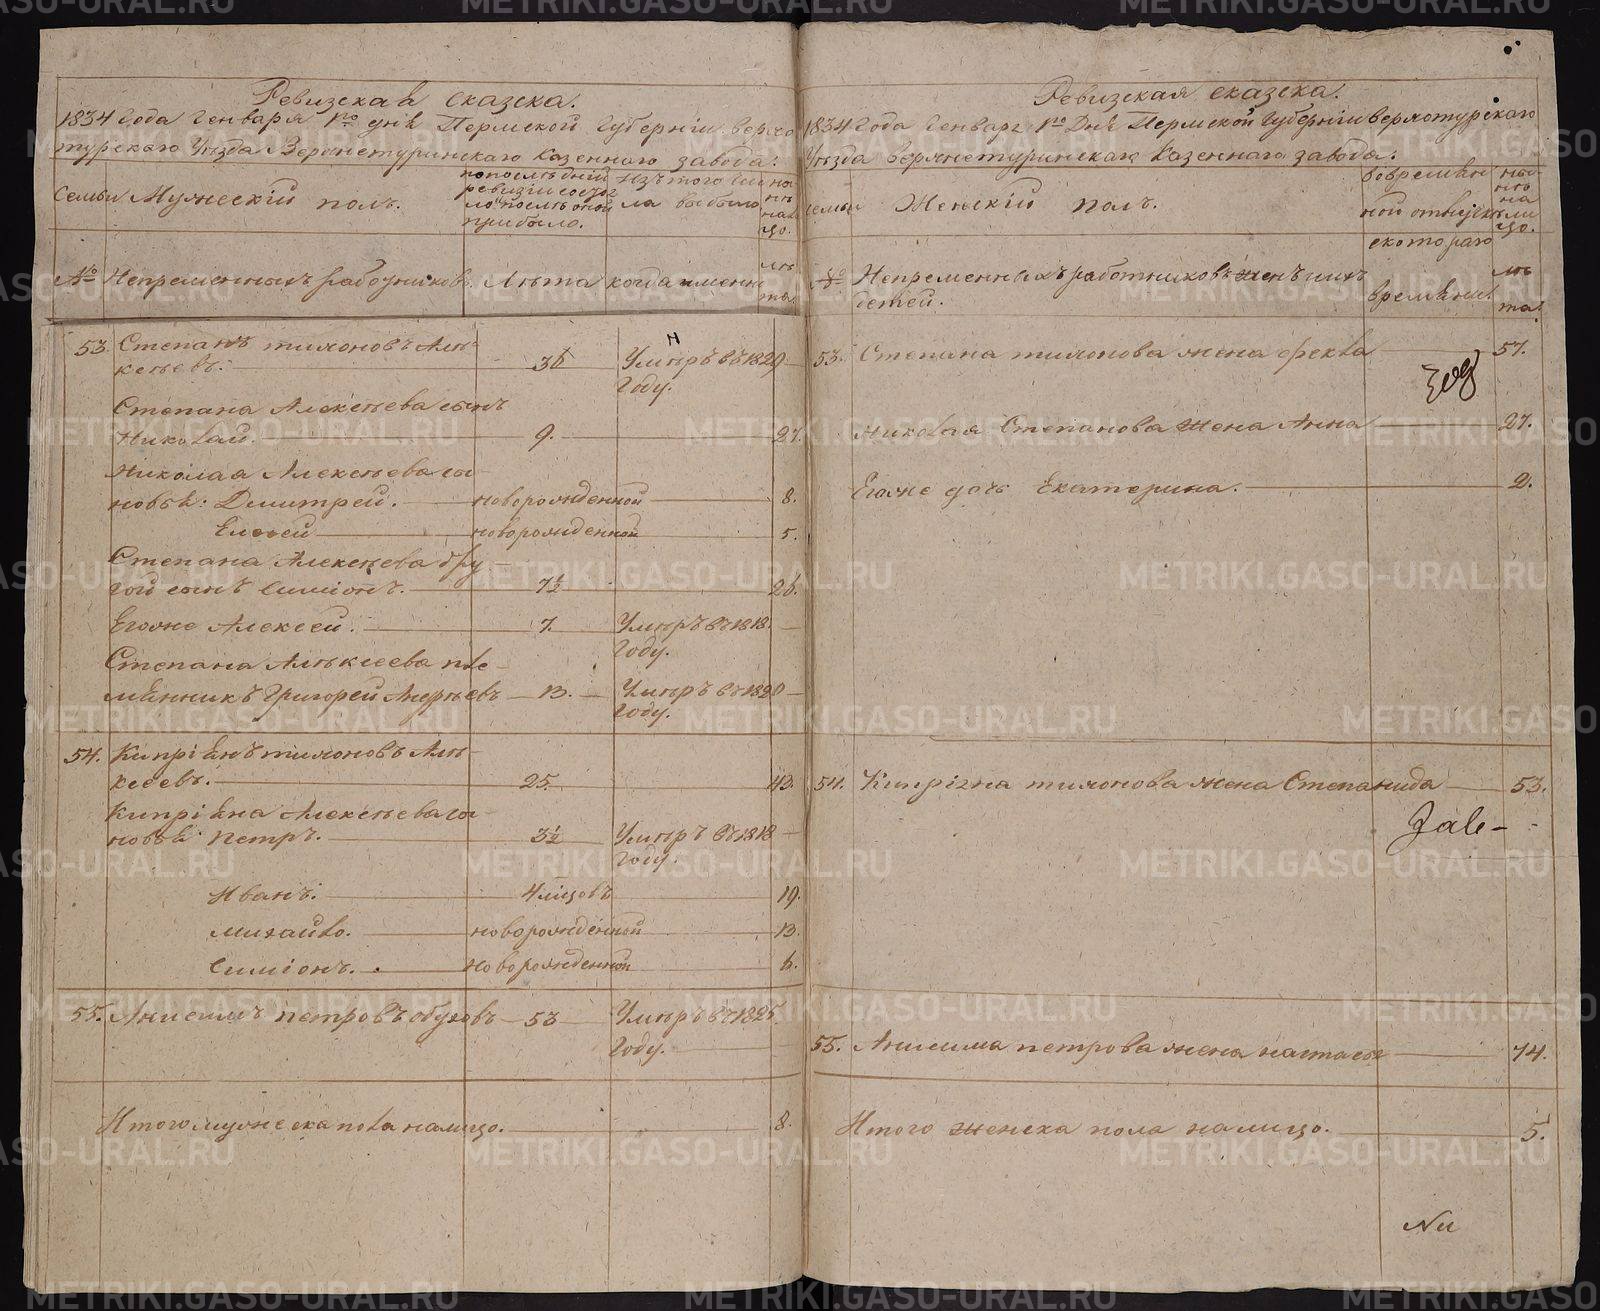 Ревизская сказска.
1834 Года Генваря 1го дня Пермской Губернiи верхо
турскаго Уѣзда Верхнетуринскаго Казеннаго завода:
Семьи
Мужескiй полъ.
по послѣдней
ревизiи состоя
ло и послѣ оной
прибыло.
Изъ того числа выбыло
ны
нѣ
на
лицо.
№
Непременныхъ работниковъ.
Лѣта
когда именно
лѣ
та
53.
Степанъ тихоновъ Алѣ
ксѣевъ.
36
Умѣръ въ 1829
Году.
Степана Алексѣева сынъ
Николай.
9.
27.
Николая Алексѣева сы
новья: Дмитрей.
новорожденной
8.
Елисей
новорожденной
5.
Степана Алексѣева дру
гой сынъ Симiонъ.
7½
26.
Егоже Алексей.
7.
Умѣръ въ 1818.
Году.
Степана Алѣксеева пле
мянникъ Григорей Андрѣевъ
13.
Умѣръ въ 1820
Году.
54.
Кипрiянъ тихоновъ Алѣ
ксеевъ.
25.
43.
Кипрiяна Алексѣева сы
новья Петръ.
3½
Умѣръ въ 1818
Году.
Иванъ:
4 мѣцовъ
19.
Михайло.
новорожденной
13.
Симiонъ.
новорожденной
6.
55.
Анисимъ петровъ обуховъ
53
Умѣръ въ 1825.
Году.
Итого мужеска пола налицо.
8.
Ревизская сказска.
1834 Года Генваря 1го Дня Пермской Губернiи верхотурскаго
Уѣзда верхнетуринскаго Казеннаго завода:
семьи
Женскiй полъ.
во времен
ной отлучк
с котораго
времяни.
ны
нѣ
на
ли
цо.
лѣ
та.
№
Непременныхъ работниковъ жены и ихъ
детей.
53.
Степана тихонова жена Фекла
57.
Николая Степанова жена Анна
27.
Егоже дочь Екатерина.
2.
54.
Кипрiяна тихонова жена Степанида
53.
55.
Анисима петрова жена настасья
74.
Итого женска пола налицо.
5.
METRIKI.GASO-URAL.RU